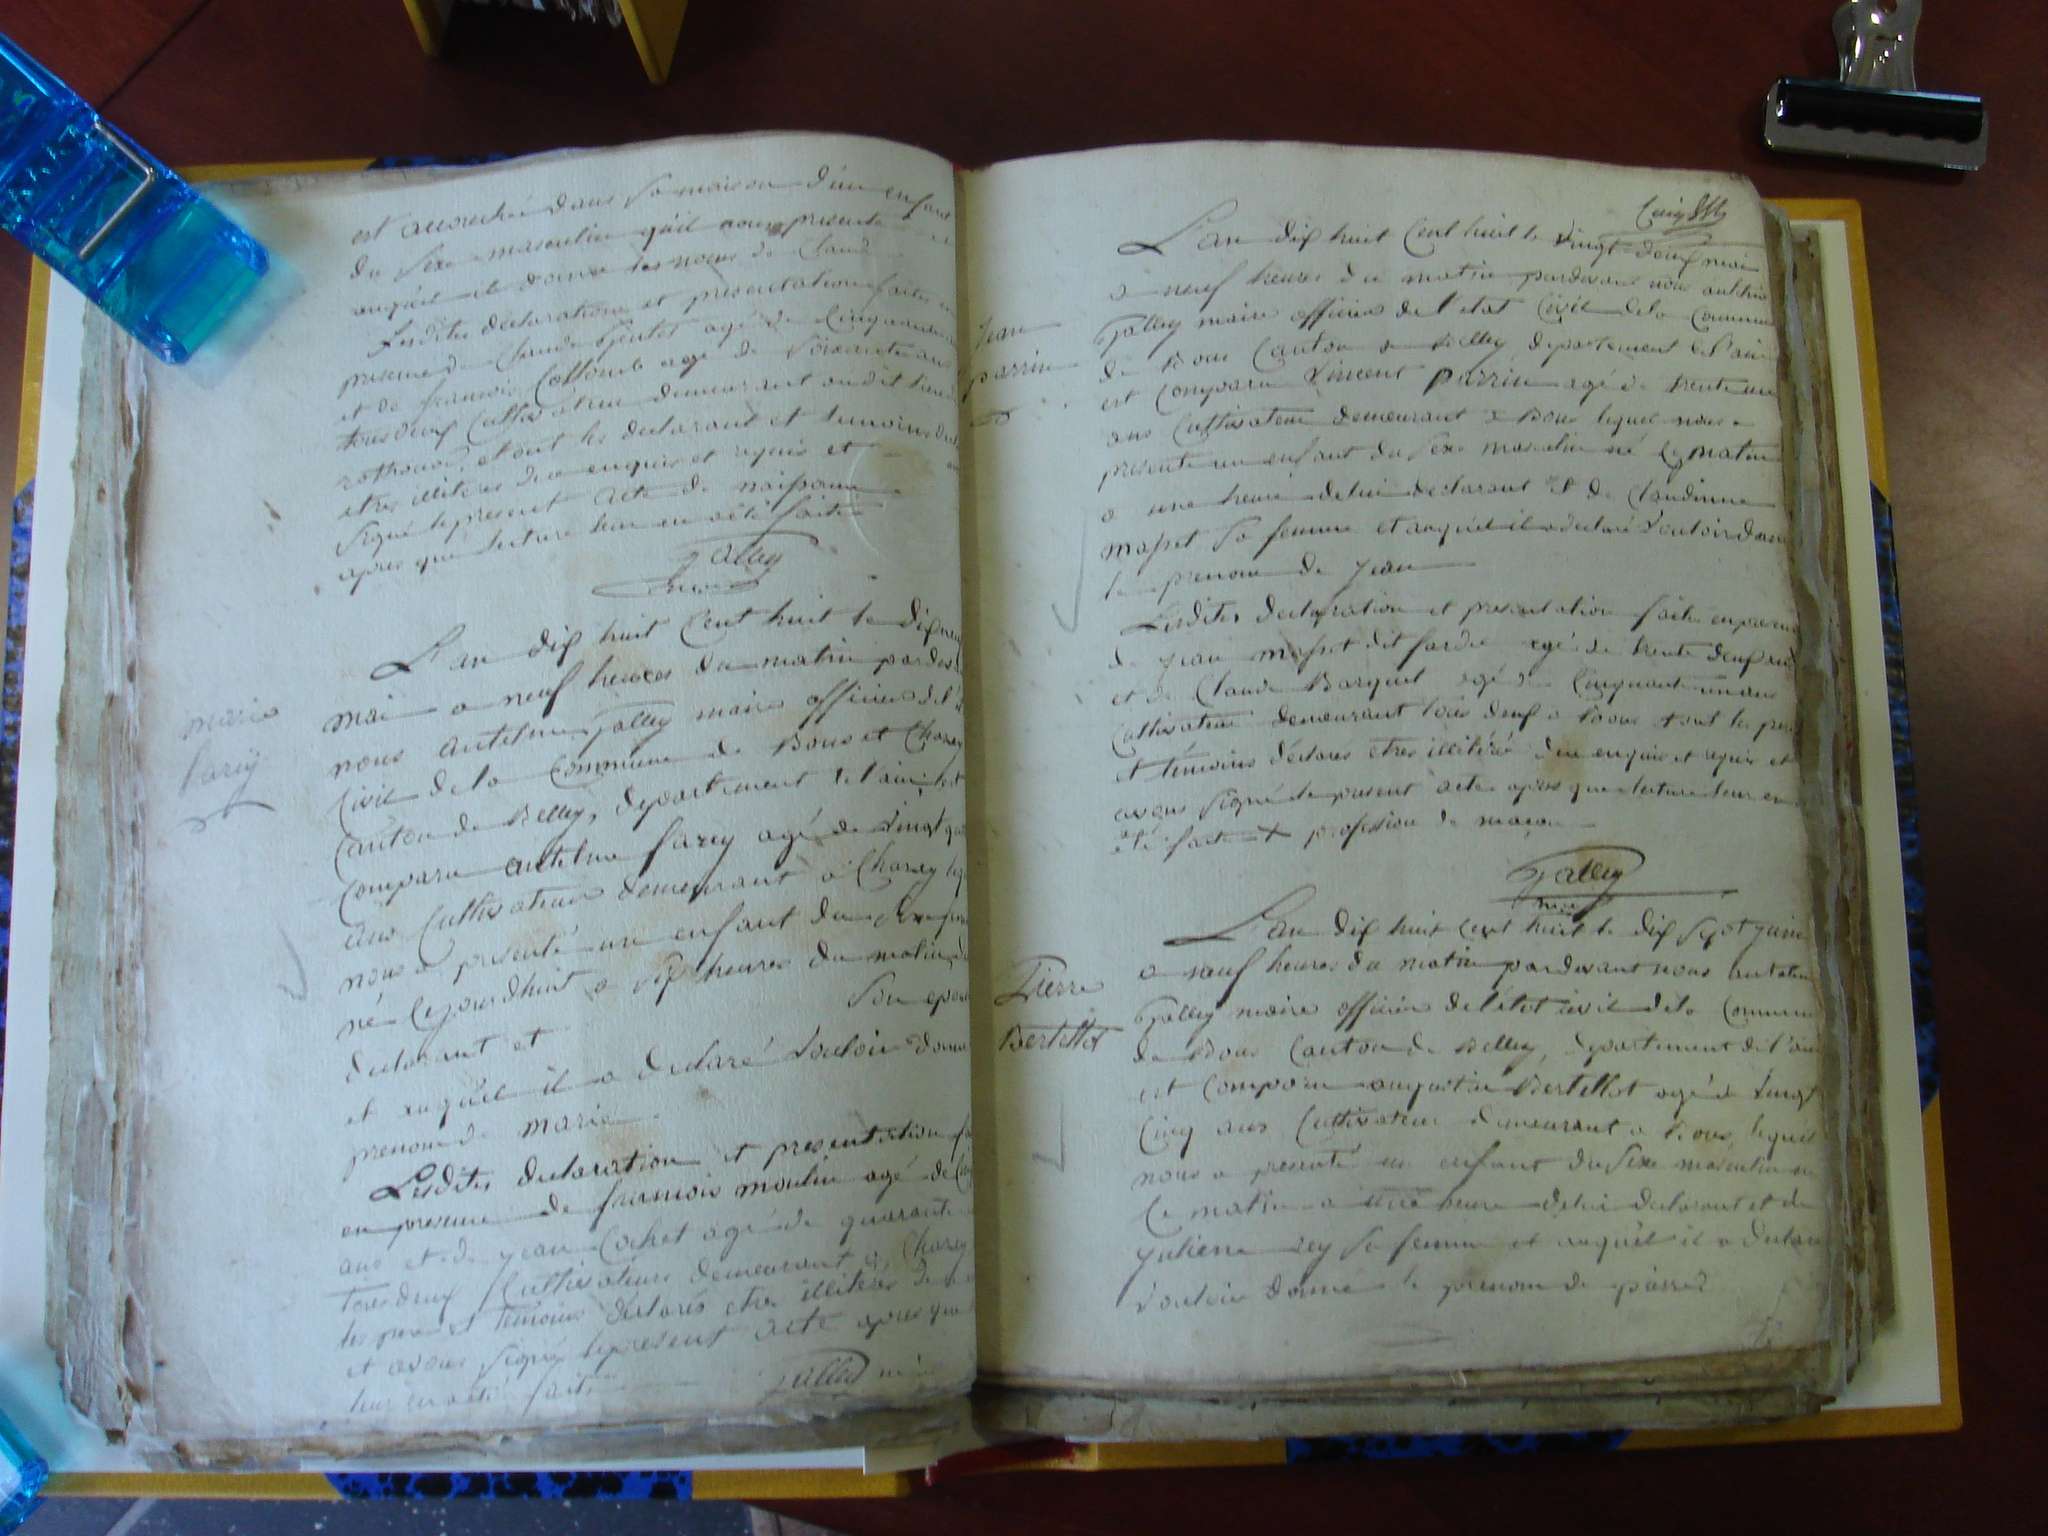 est accouchée dans sa maison d'un enfant
du sexe masculin qu'il nous presente et
auquel il donne les noms de Claude
Lesdites déclaration et presentation faites en
presence de Claude agé de Cinquante
et de francois Collomb agé de Soixante ans
tous deux Cultivateurs demeurant audit lieu
et ont les declarant et temoins
etres illiteres de ce enquis et requis et
Signé le present acte de naissance
apres que lecture leur en a été faite
Galley
maire
marie
farcy
L'an dix huit Cent huit le dix neuf
mai a neuf heures du matin pardevant
nous antelme Galley maire officier de l'
Civil de la Commune de Bons et Chazey
Canton de Belley, departement de l'ain, est
Comparu antelme farcy agé de vingt
ans Cultivateur demeurant a Chazey
nous a presenté un enfant du Sexe
né Cejourdhuit a Six heures du matin, de
Son epouse
declarant et
et auquel il a declaré Vouloir donner
prenom de marie
Lesdites declaration et presentation
en presence de francois moulin agé de
ans et de jean Cochet agé de quarante
tous deux Cultivateurs demeurant a Chazey
les pere et temoins declarés etre illiterés de
et avons Signé le present acte apres que
leur en a été faite
Galley maire
jean
parrin
L'an dix huit Cent huit le vingt deux mai
a neuf heures du matin pardevant nous anthelme
Galley maire officier de l'etat Civil de la Commune
de Bons Canton de Belley departement de l'ain
est Comparu Vincent parrin agé de trente un
ans Cultivateur demeurant a Bons lequel nous a
presenté un enfant du Sexe masculin né Ce matin
a une heure de lui declarant et de Claudinne
masset Sa femme et auquel il a declaré Vouloir donner
le prenom de jean
Lesdites declaration et presentation faite en presence
de jean masset dit agé de trente deux ans
et de Claude Barquet agé de Cinquante un ans
Cultivateur demeurant tous deux a Bons + ont les pere
et témoins déclarés etres illitéré de ce enquis et requis et
avons Signé le present acte apres que lecture leur en
été faite + profession de macon
Galley
maire
Pierre
Bertellot
L'an dix huit Cent huit le dix Sept juin
a neuf heures du matin pardevant nous antelme
Galley maire officier de l'état Civil de la Commune
de Bons Canton de Belley, departement de l'ain
est Comparu augustin Bertellot agé de Vingt
Cinq ans Cultivateur demeurant a Bons, lequel
nous a presenté un enfant du Sexe masculin né
Ce matin a une heure de lui declarant et de
julienne rey Sa femme et auquel il a declaré
Vouloir donné le prenom de pierre